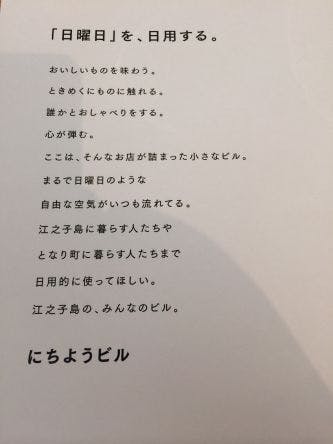 「日曜日」を、日用する。
おいしいものを味わう。
ときめくにものに触れる。
誰かとおしゃべりをする。
心が弾む。
ここは、そんなお店が詰まった小さなビル。
まるで日曜日のような
自由な空気がいつも流れてる。
江之子島に暮らす人たちや
となり町に暮らす人たちまで
日用的に使ってほしい。
江之子島の、みんなのビル。
にちようビル